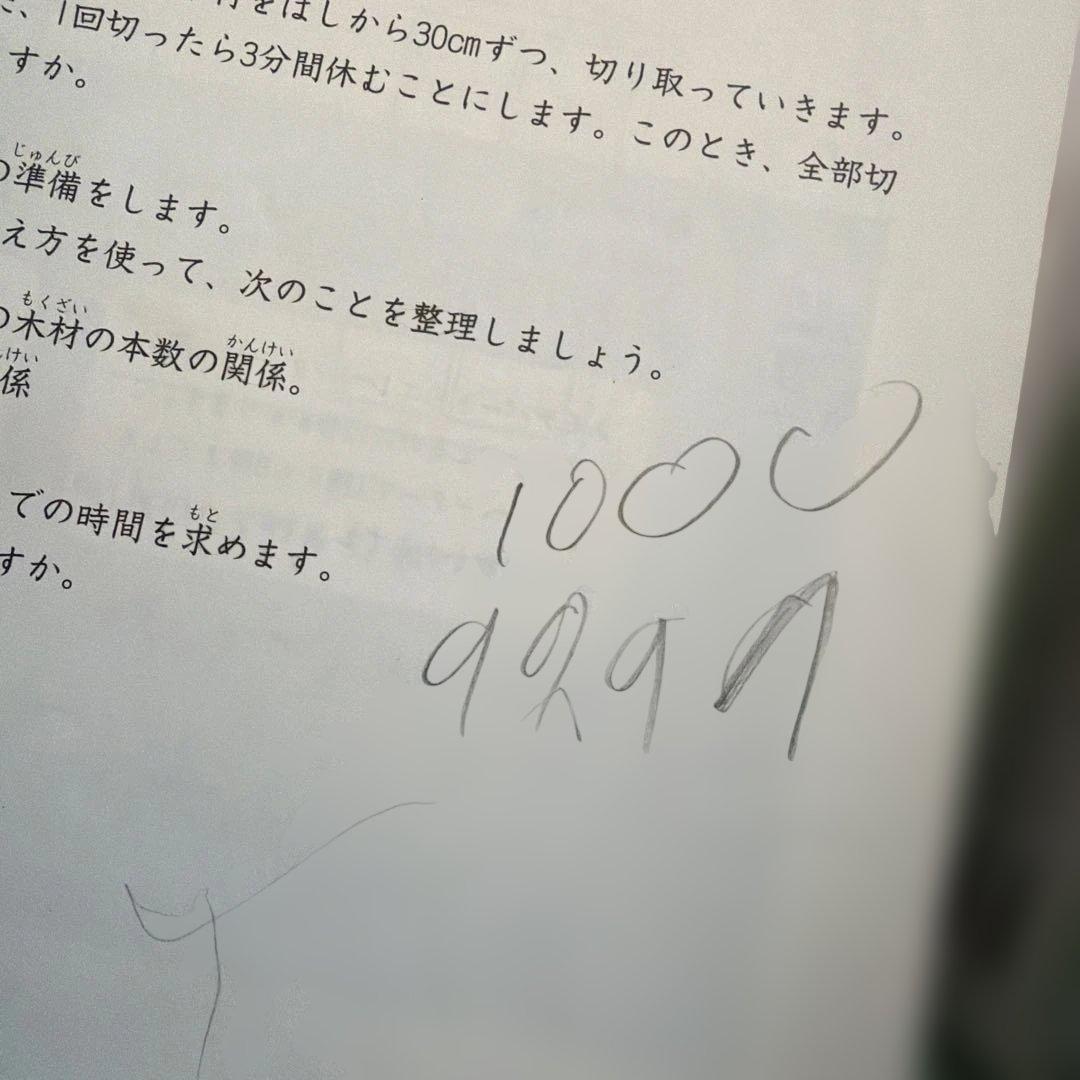 をはしから30cmずつ、切り取っていきます。
、1回切ったら3分間休むことにします。このとき、全部切
すか。
の準備をします。
え方を使って、次のことを整理しましょう。
の木材の本数の関係。
係
での時間を求めます。
すか。
1000